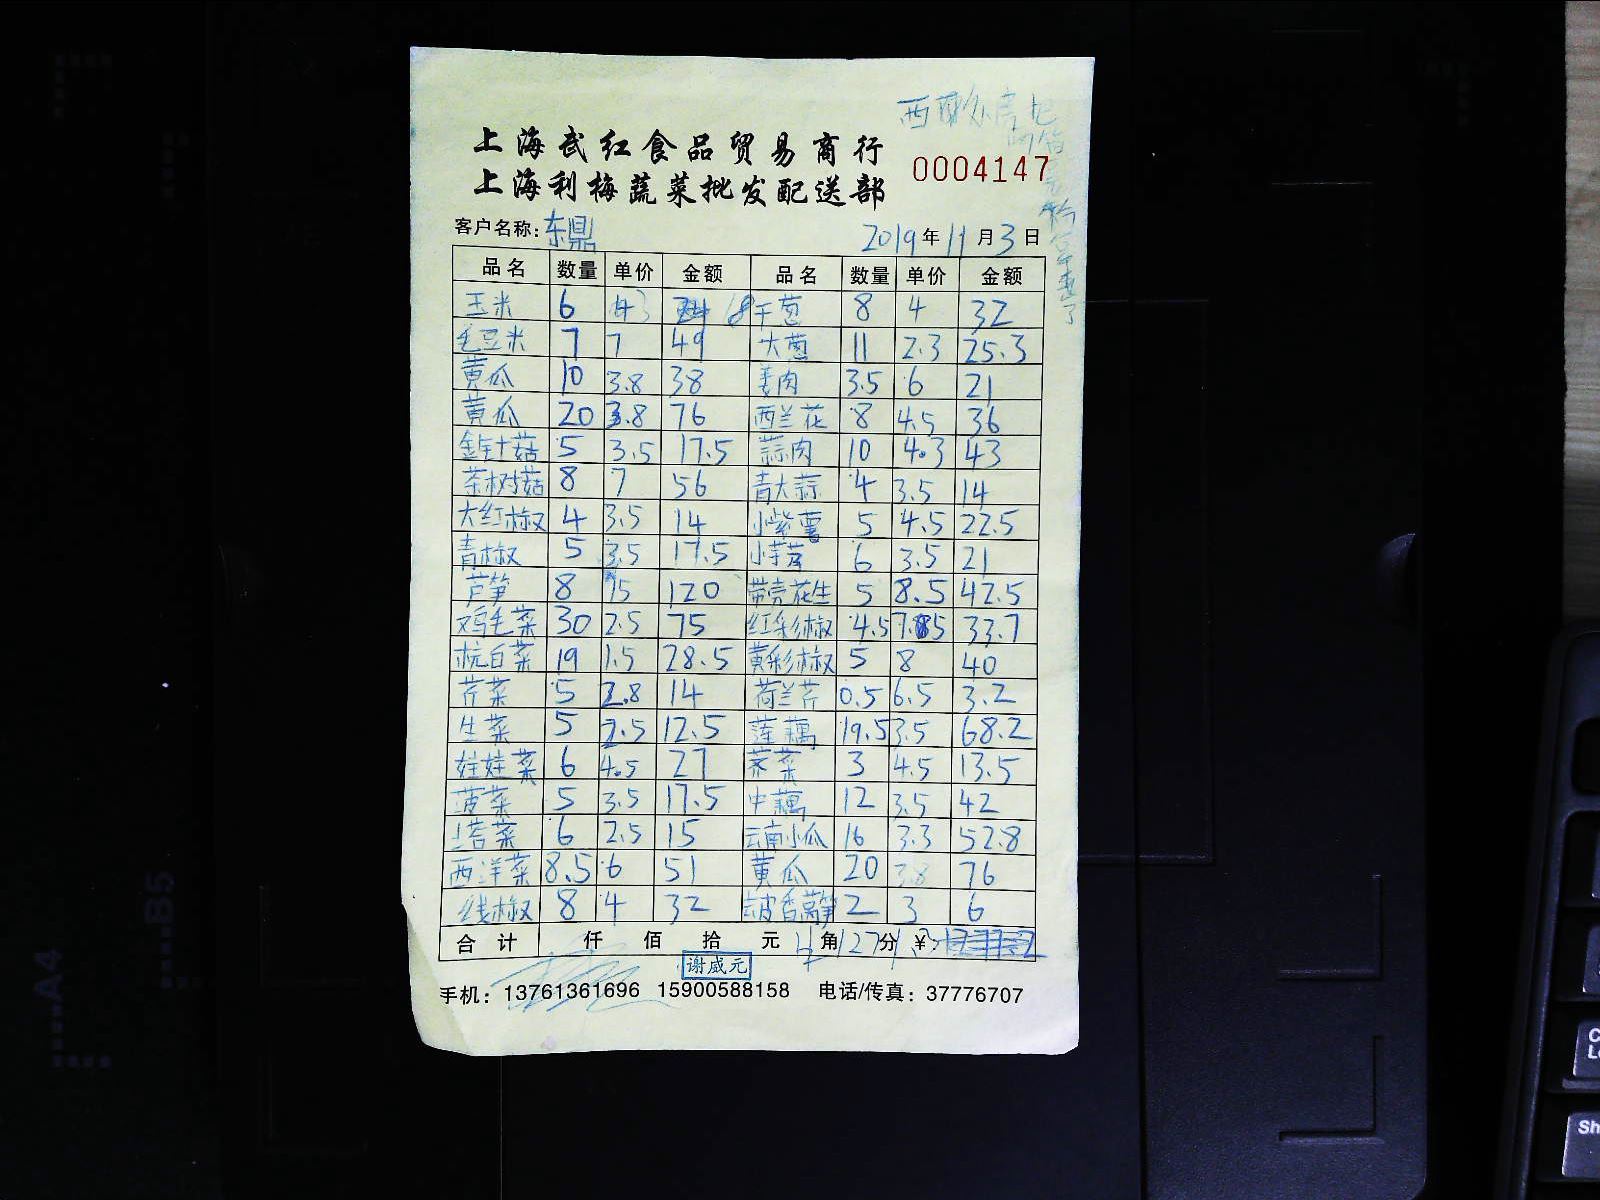 上海武红食品贸易商行
0004147
上海利梅蔬菜批发配送部
客户名称: 东鼎 2019年11月3日
品名 数量 单价 金额 品名 数量 单价 金额
玉米 6 3 18 干葱 8 4 32
毛豆米 7 7 49 大葱 11 2.3 25.3
黄瓜 10 3.8 38 姜肉 3.5 6 21
黄瓜 20 3.8 76 西兰花 8 4.5 36
金针菇 5 3.5 17.5 蒜肉 10 4.3 43
茶树菇 8 7 56 青大蒜 4 3.5 14
大红椒 4 3.5 14 小紫薯 5 4.5 22.5
青椒 5 3.5 17.5 小芋艿 6 3.5 21
芦笋 8 15 120 带壳花生 5 8.5 42.5
鸡毛菜 30 2.5 75 红彩椒 4.5 7.5 33.7
杭白菜 19 1.5 28.5 黄彩椒 5 8 40
芹菜 5 2.8 14 荷兰芹 0.5 6.5 3.2
生菜 5 2.5 12.5 莲藕 19.5 3.5 68.2
娃娃菜 6 4.5 27 荠菜 3 4.5 13.5
菠菜 5 3.5 17.5 中藕 12 3.5 42
塔菜 6 2.5 15 云南小瓜 16 3.3 52.8
西洋菜 8.5 6 51 黄瓜 20 3.8 76
线椒 8 4 32 香莴笋 2 3 6
合计 仟 佰 拾 元 角 分 ¥:
谢威元
手机: 13761361696 15900588158 电话/传真: 37776707